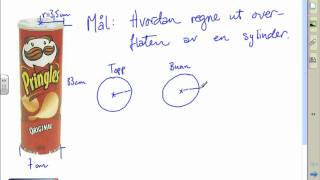 r=3,5cm
Mål: Hvordan regne ut over-
flaten av en sylinder.
Topp
Bunn
Pringles
ORIGINAL
7 cm